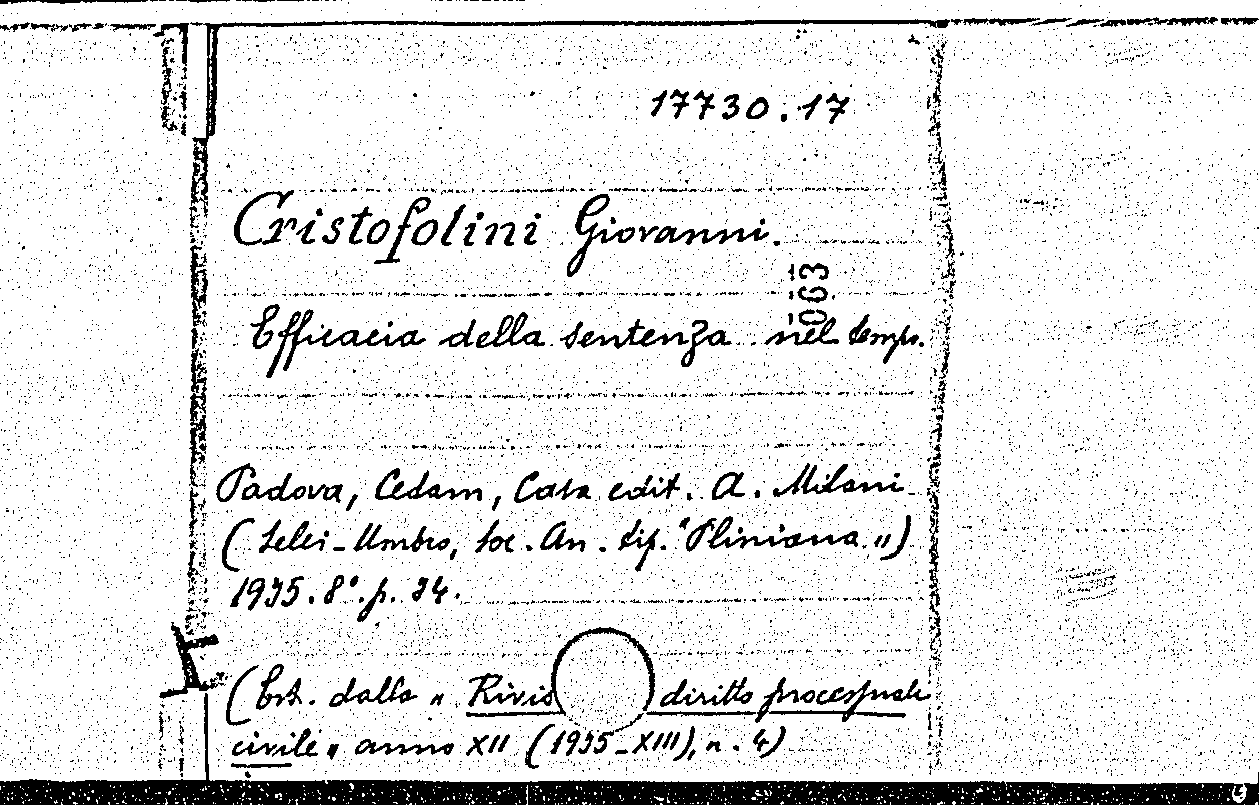 17730.17
Cristofolini Giovanni.
063
Efficacia della sentenza nel tempo.
Padova, Cedam, Casa edit. A. Milani
(Selci-Umbro, Soc. An. tip. "Pliniana")
1935. 8°. p. 34.
(Est. dalla " Rivis diritto processuale
civile " anno XII (1935-XIII), n. 4)